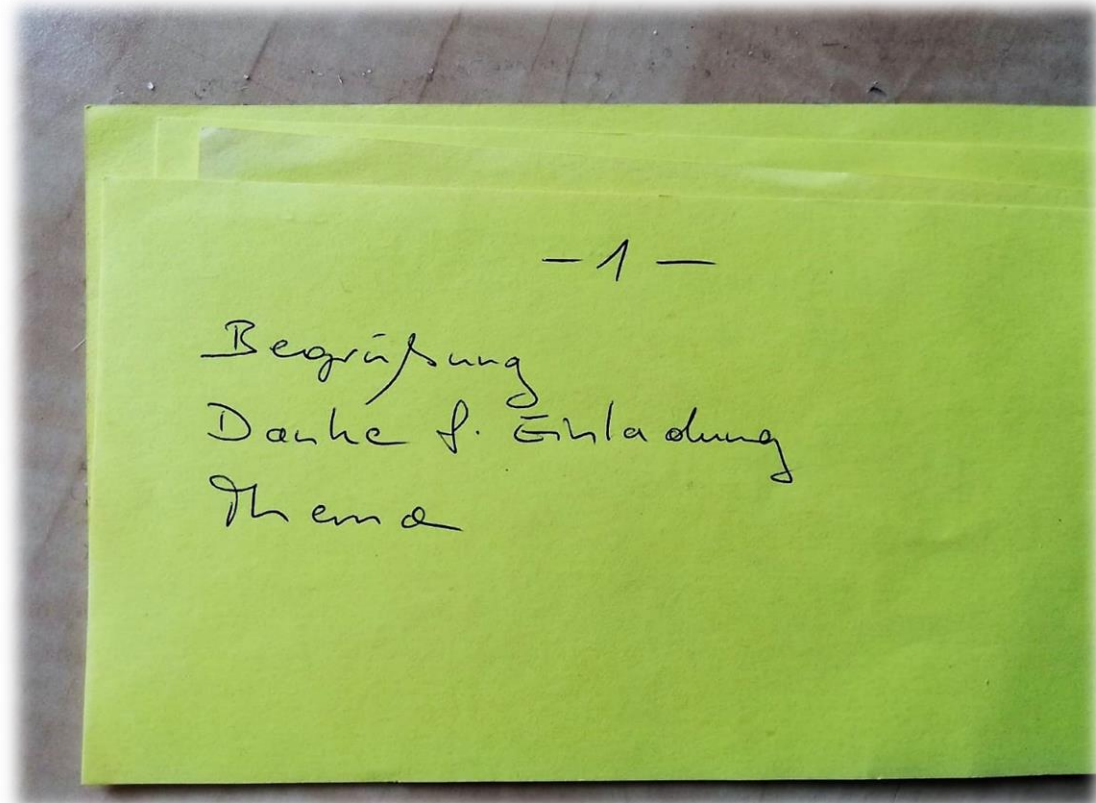 – 1 –
Begrüßung
Danke f. Einladung
Thema